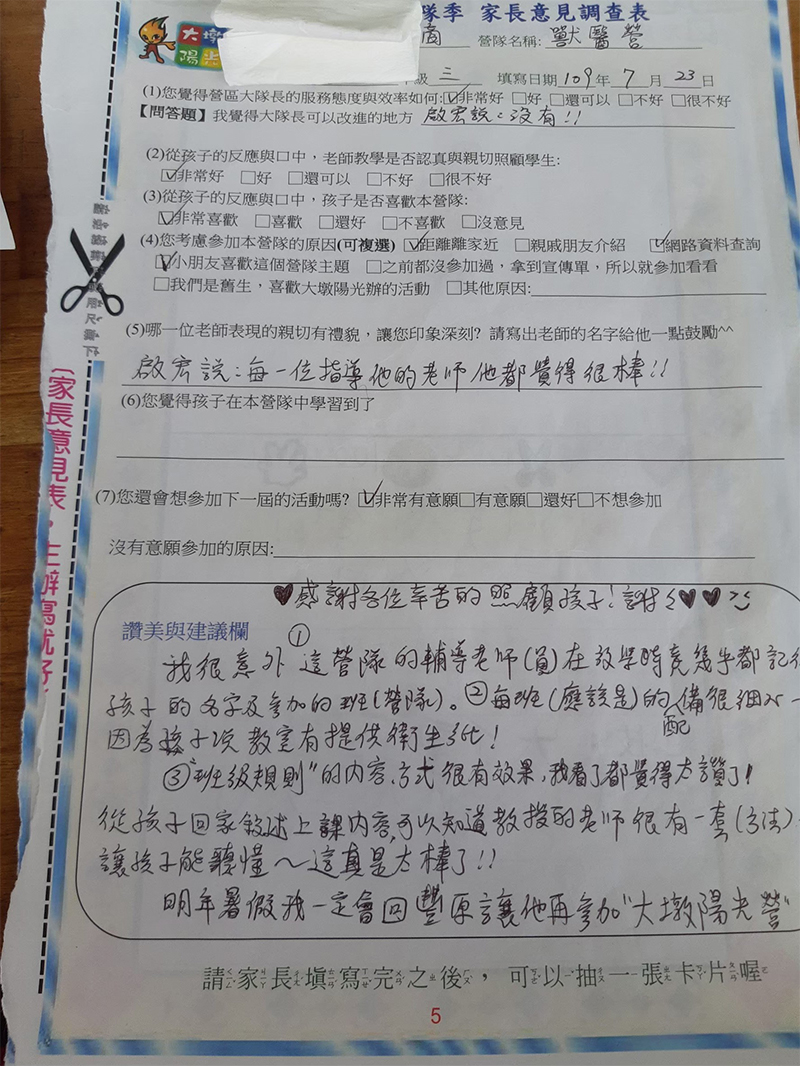 隊季 家長意見調查表
大墩
陽光
營隊名稱:獸醫營
級 三 填寫日期 109年 7 月 23 日
(1)您覺得營區大隊長的服務態度與效率如何:☑非常好 □好 □還可以 □不好 □很不好
【問答題】我覺得大隊長可以改進的地方 啟宏說:沒有!!
(2)從孩子的反應與口中，老師教學是否認真與親切照顧學生:
☑非常好 □好 □還可以 □不好 □很不好
(3)從孩子的反應與口中，孩子是否喜歡本營隊:
☑非常喜歡 □喜歡 □還好 □不喜歡 □沒意見
(4)您考慮參加本營隊的原因(可複選) ☑距離離家近 □親戚朋友介紹 ☑網路資料查詢
☑小朋友喜歡這個營隊主題 □之前都沒參加過，拿到宣傳單，所以就參加看看
□我們是舊生，喜歡大墩陽光辦的活動 □其他原因:
(5)哪一位老師表現的親切有禮貌，讓您印象深刻? 請寫出老師的名字給他一點鼓勵^^
啟宏說:每一位指導他的老師他都覺得很棒!!
(6)您覺得孩子在本營隊中學習到了
(7)您還會想參加下一屆的活動嗎? ☑非常有意願□有意願□還好□不想參加
沒有意願參加的原因:
♥感謝各位辛苦的照顧孩子!謝々♥♥
讚美與建議欄
我很意外①這營隊的輔導老師(員)在放學時竟幾乎都記
孩子的名字及參加的班(營隊)。②每班(應該是)的配備很細
因為孩子次教室有提供衛生紙!
③"班級規則"的內容、方式很有效果,我看了都覺得太讚了!
從孩子回家敘述上課內容,可以知道教授的老師很有一套(方法)
讓孩子能聽懂～這真是太棒了!!
明年暑假我一定會回豐原讓他再參加"大墩陽光營"
請家長填寫完之後，可以抽一張卡片喔
5
〔家長意見表，